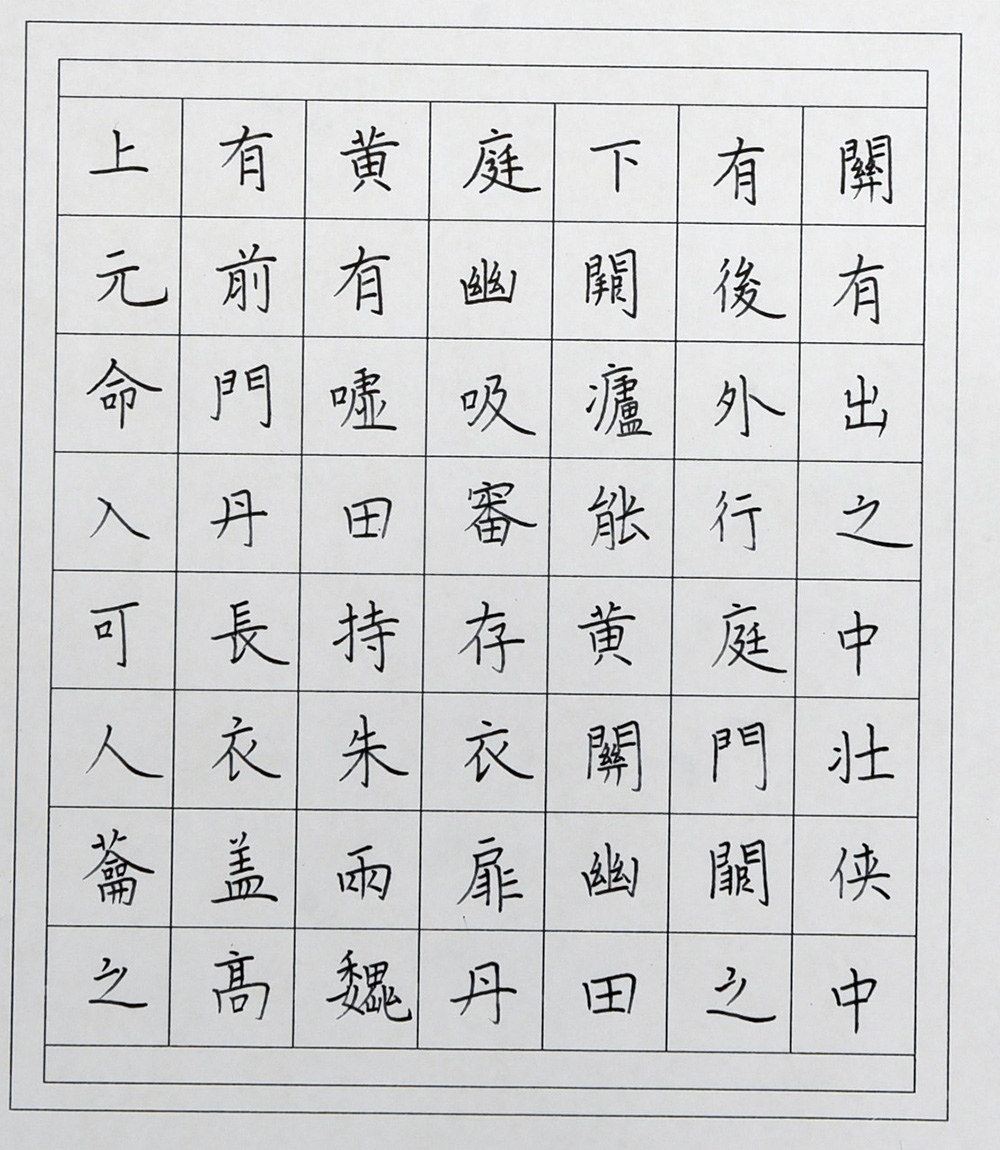 上有黄庭下有關
元前有幽闕後有
命門嘘吸廬外出
入丹田審能行之
可長持存黄庭中
人衣朱衣關門壯
蘥盖兩扉幽闕侠
之髙魏丹田之中